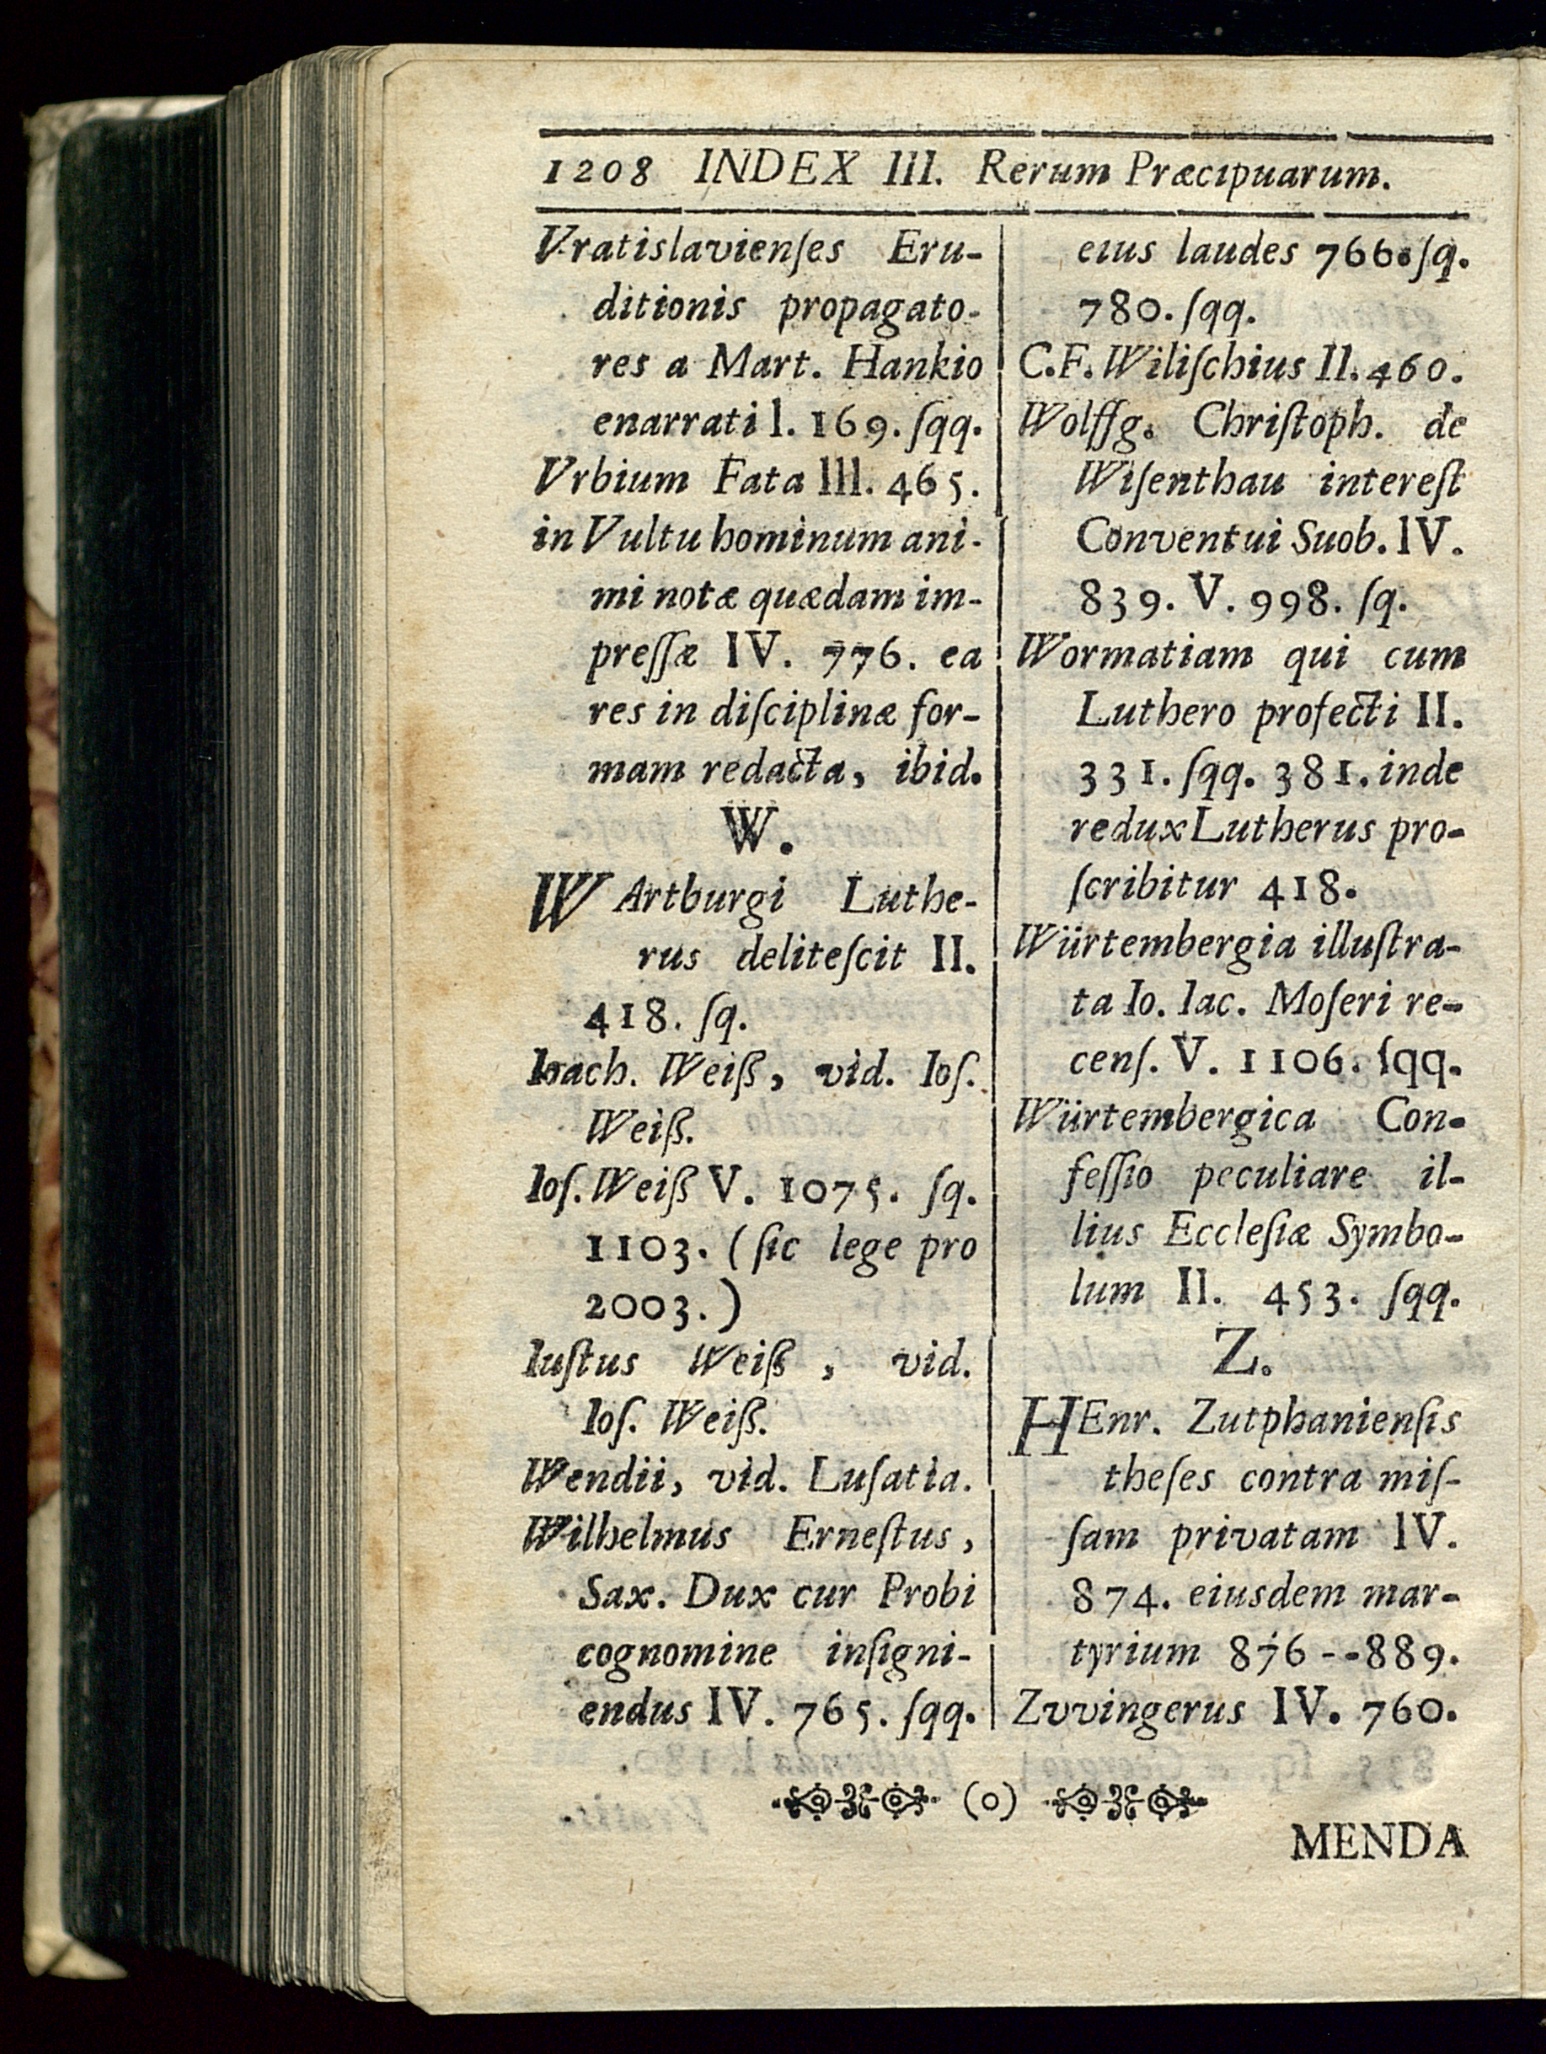 1208 INDEX III. Rerum Præcipuarum.
Vratislavienſes Eru-
ditionis propagato-
res a Mart. Hankio
enarrati I. 169. ſqq.
Vrbium Fata III. 465.
in Vultu hominum ani-
mi notæ quædam im-
preſſæ IV. 776. ea
res in diſciplinæ for-
mam redacta, ibid.
W.
WArtburgi Luthe-
rus deliteſcit II.
418. ſq.
Ioach. Weiß, vid. Ioſ.
Weiß.
Ioſ. Weiß V. 1075. ſq.
1103. (ſic lege pro
2003.)
Iuſtus Weiß, vid.
Ioſ. Weiß.
Wendii, vid. Luſatia.
Wilhelmus Erneſtus,
Sax. Dux cur Probi
cognomine inſigni-
endus IV. 765. ſqq.
eius laudes 766. ſq.
780. ſqq.
C.F. Wiliſchius II. 460.
Wolffg. Chriſtoph. de
Wiſenthau intereſt
Conventui Suob. IV.
839. V. 998. ſq.
Wormatiam qui cum
Luthero profecti II.
331. ſqq. 381. inde
redux Lutherus pro-
ſcribitur 418.
Würtembergia illuſtra-
ta Io. Iac. Moſeri re-
cenſ. V. 1106. ſqq.
Würtembergica Con-
feſſio peculiare il-
lius Eccleſiæ Symbo-
lum II. 453. ſqq.
Z.
HEnr. Zutphanienſis
theſes contra miſ-
ſam privatam IV.
874. eiusdem mar-
tyrium 876--889.
Zvvingerus IV. 760.
(o)
MENDA